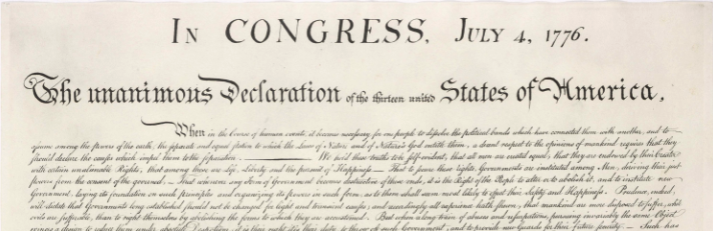 In CONGRESS, July 4, 1776.
The unanimous Declaration of the thirteen united States of America,
When in the Course of human events, it becomes necessary for one people to dissolve the political bands which have connected them with another, and to
assume among the powers of the earth, the separate and equal station to which the Laws of Nature and of Nature's God entitle them, a decent respect to the opinions of mankind requires that they
should declare the causes which impel them to the separation. We hold these truths to be self-evident, that all men are created equal, that they are endowed by their Creator
with certain unalienable Rights, that among these are Life, Liberty and the pursuit of Happiness.— That to secure these rights, Governments are instituted among Men, deriving their just
powers from the consent of the governed,— That whenever any Form of Government becomes destructive of these ends, it is the Right of the People to alter or to abolish it, and to institute new
Government, laying its foundation on such principles and organizing its powers in such form, as to them shall seem most likely to effect their Safety and Happiness. Prudence, indeed,
will dictate that Governments long established should not be changed for light and transient causes; and accordingly all experience hath shewn, that mankind are more disposed to suffer, while
evils are sufferable, than to right themselves by abolishing the forms to which they are accustomed. But when a long train of abuses and usurpations, pursuing invariably the same Object